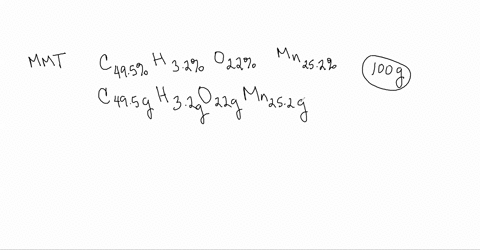 MMT C49.5% H3.2% O22% Mn25.2% 100g
C49.5g H3.2g O22g Mn25.2g